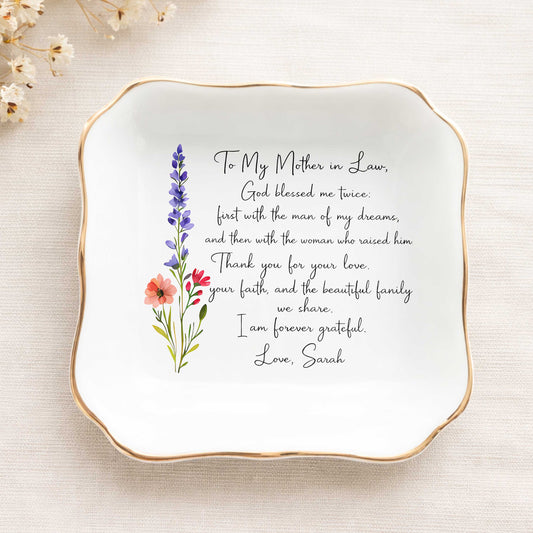 To My Mother in Law,
God blessed me twice:
first with the man of my dreams,
and then with the woman who raised him
Thank you for your love,
your faith, and the beautiful family
we share.
I am forever grateful.
Love, Sarah